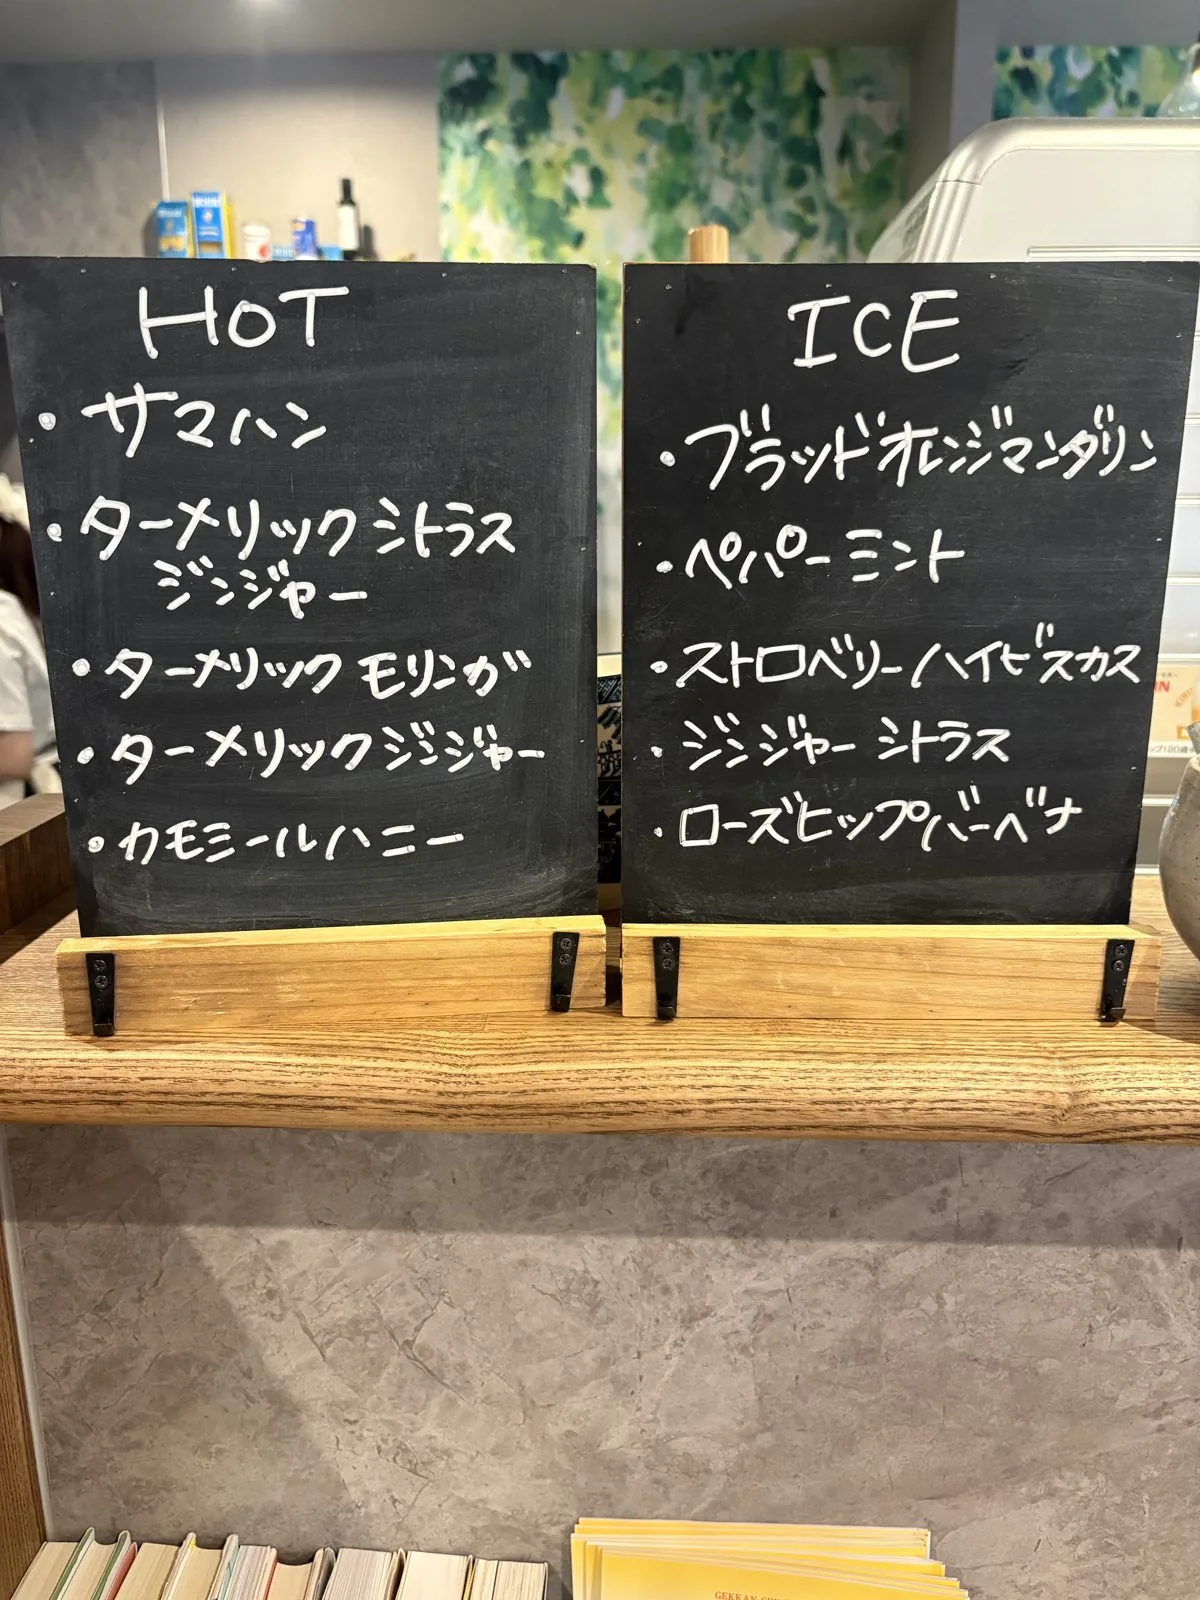 HOT
・サマハン
・ターメリック シトラス
ジンジャー
・ターメリック モリンガ
・ターメリックジンジャー
・カモミールハニー
ICE
・ブラッドオレンジマンダリン
・ペパーミント
・ストロベリーハイビスカス
・ジンジャー シトラス
・ローズヒップバーベナ